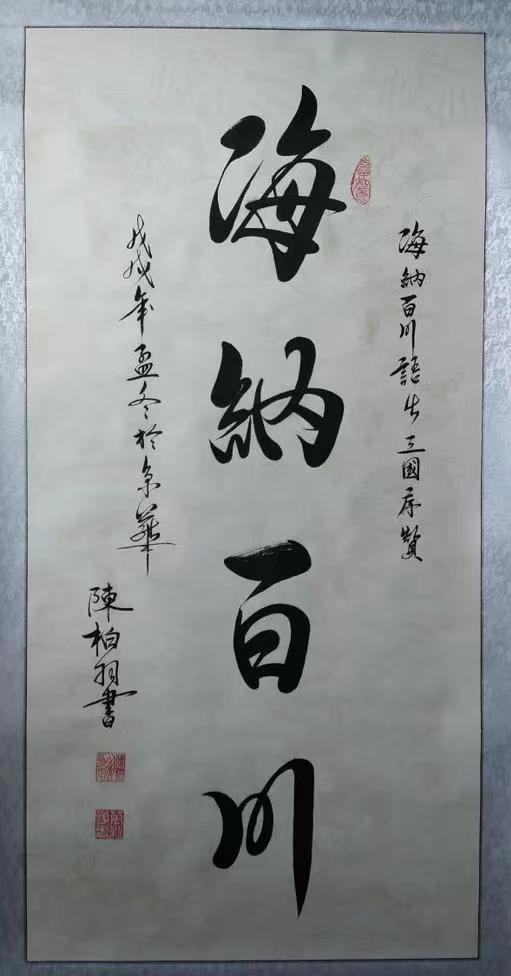 海納百川
海納百川語出三國序贊
戊戌年孟冬於京華
陳柏羽書